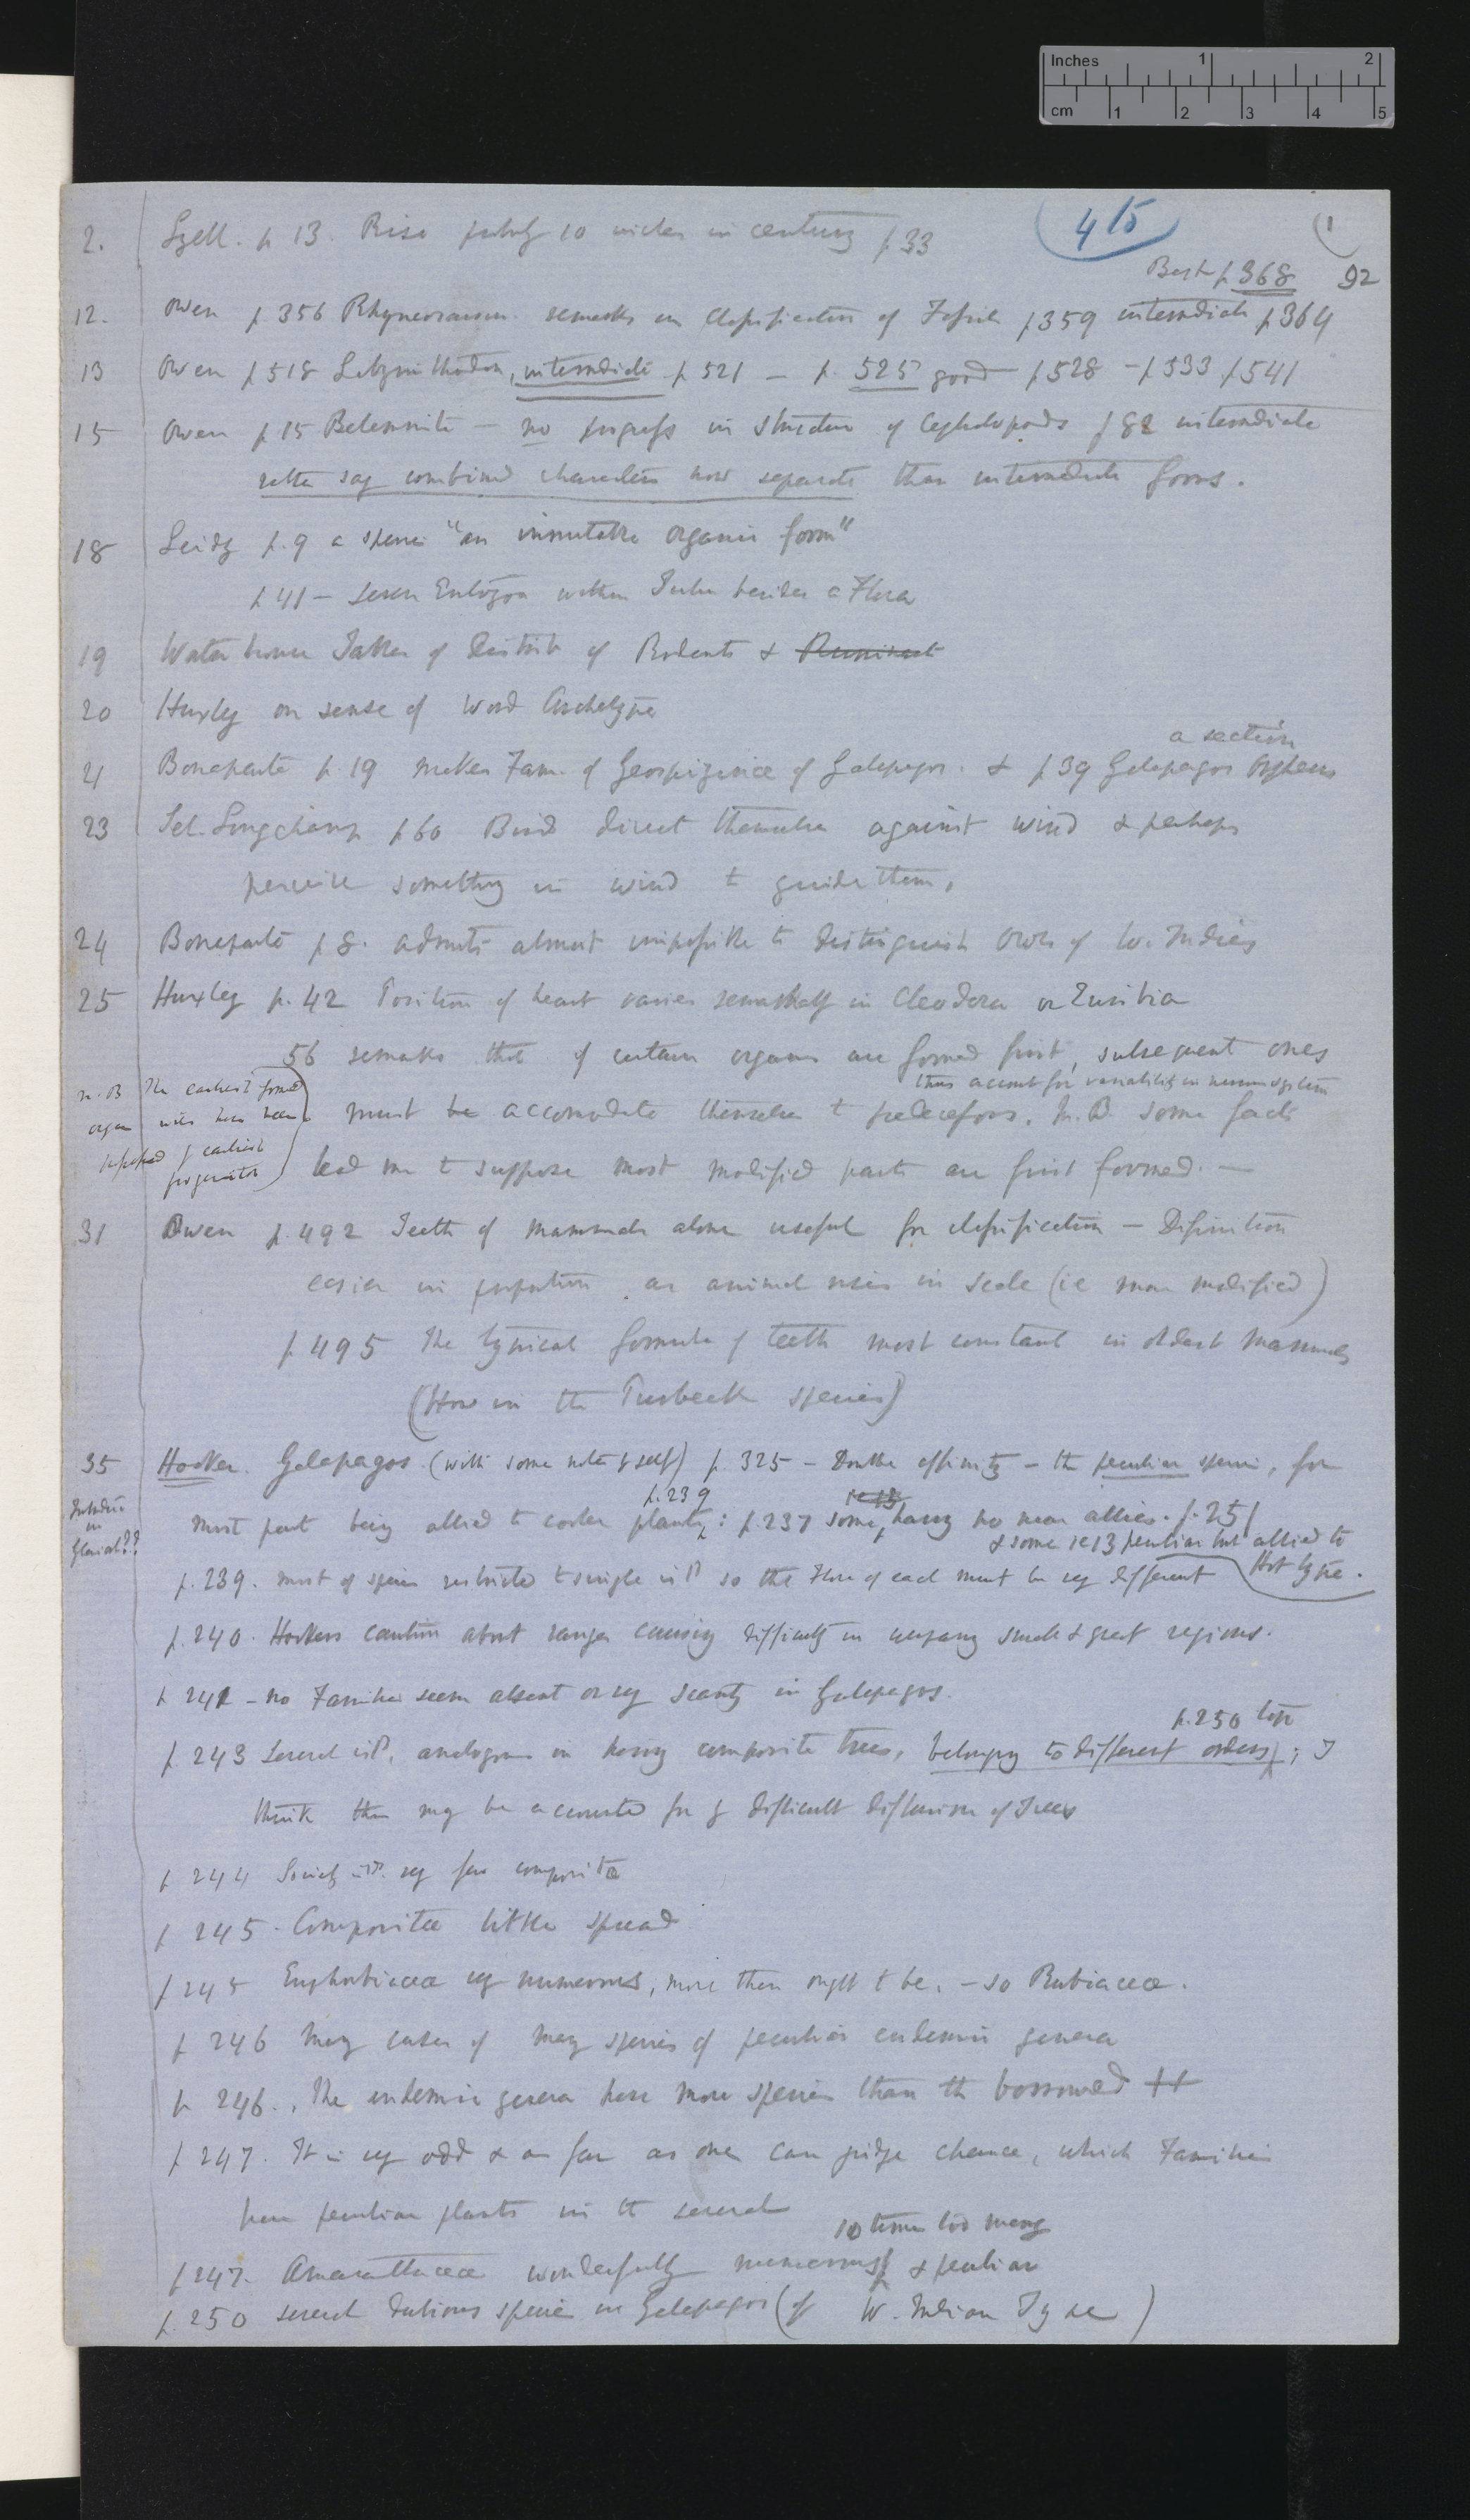 Inches 1 2
cm 1 2 3 4 5
415 (1
92
2. Lyell. p 13. Rise probably 10 inches in century p 33
Best p 368
12. Owen p 356 Rhyncosaurus. remarks on Classification of Fossils p 359 intermediate p 364
13 Owen p 518 Labyrinthodon, intermediate p 521 – p. 525 good p 528 – p 533 p 541
15 Owen p 15 Belemnite – no progress in structure of Cephalopods p 82 intermediate
rather say combined characters now separate than intermediate forms.
18 Leidy p. 9 a species "an immutable organic form"
p 41 – seven Entozoa within Iulus besides a Flora
19 Waterhouse Table of Distrib of Rodents & Ruminant
20 Huxley on sense of word Archetype
a section
21 Bonaparte p. 19 makes Fam. of Geospizinae of Galapagos. & p 39 Galapagos Orpheus
23 Sel. Longchamp p 60 Birds direct themselves against wind & perhaps
perceive something in wind to guide them,
24 Bonaparte p 8. admits almost impossible to distinguish Owls of W. Indies
25 Huxley p. 42 Position of heart varies remarkably in Cleodora or Euribia
56 remarks that if certain organs are formed first, subsequent ones
thus account for variability in nervous system
must be accomodate themselves to predecessors. N.B. some facts
lead me to suppose most modified parts are first formed. —
N.B The earliest formed
organ will have been
possessed by earliest
progenitor
31 Owen p. 492 Teeth of Mammals alone useful for classification – Definition
easier in proportion as animal rises in scale (ie more modified)
p. 495 The typical formula of teeth most constant in oldest Mammals
(How in the Purbeck species)
35 Hooker. Galapagos. (with some notes by self) p. 325 – Double affinity – the peculiar species, for
p. 239 ie 13
most part being allied to cooler plants: p. 237 some having no near allies. p. 251
& some ie 13 peculiar but allied to
Hot type.
Introduc
in
Glacial??
p. 239. most of species restricted to single isd so the Flora of each must be very different
p. 240. Hookers caution about ranges causing difficulty in comparing small & great regions.
p 241 – no Families seem absent or very scanty in Galapagos.
p. 250 top
p. 243 Several isd. analogous in having composite trees, belonging to different orders; I
think this may be accounted for by difficult diffusion of Trees
p 244 Society isd. very few composite
p 245. Compositae little spread
p 245 Euphorbiaceae very numerous, more than ought to be. – so Rubiaceae.
p 246 Many cases of many species of peculiar endemic genera
p 246. The endemic genera have more species than the borrowed ++
p 247. It is very odd & as far as one can judge chance, which Families
have peculiar plants in the several
10 times too many
p 247. Amaranthaceae wonderfully numerous & peculiar
p. 250 several dubious species in Galapagos (of W. Indian Type)